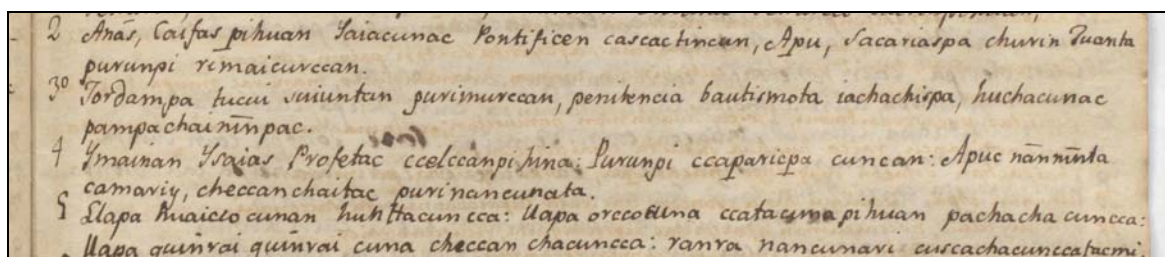 2 Anas, Caifas pihuan Saiacunac Pontificen cascactincun, Apu, Sacariaspa churin Juanta
purunpi rimaicurccan.
3º Jordampa tucui suiuntan purimurccan, penitencia bautismota iachachispa, huchacunac
pampachainīnpac.
4 Ymainan Ysaias Profetac ccelccanpi hina: Purunpi ccaparicpa cuncan: Apuc nānnīnta
camariy, checcanchaitac purinancunata.
5 Llapa huaicco cunan huhttacuncca: llapa orccocuna ccatacunapihuan pachacha cuncca:
llapa quinrai quinrai cuna checcan chacuncca: ranra nancunari cuscachacunccatacmi,